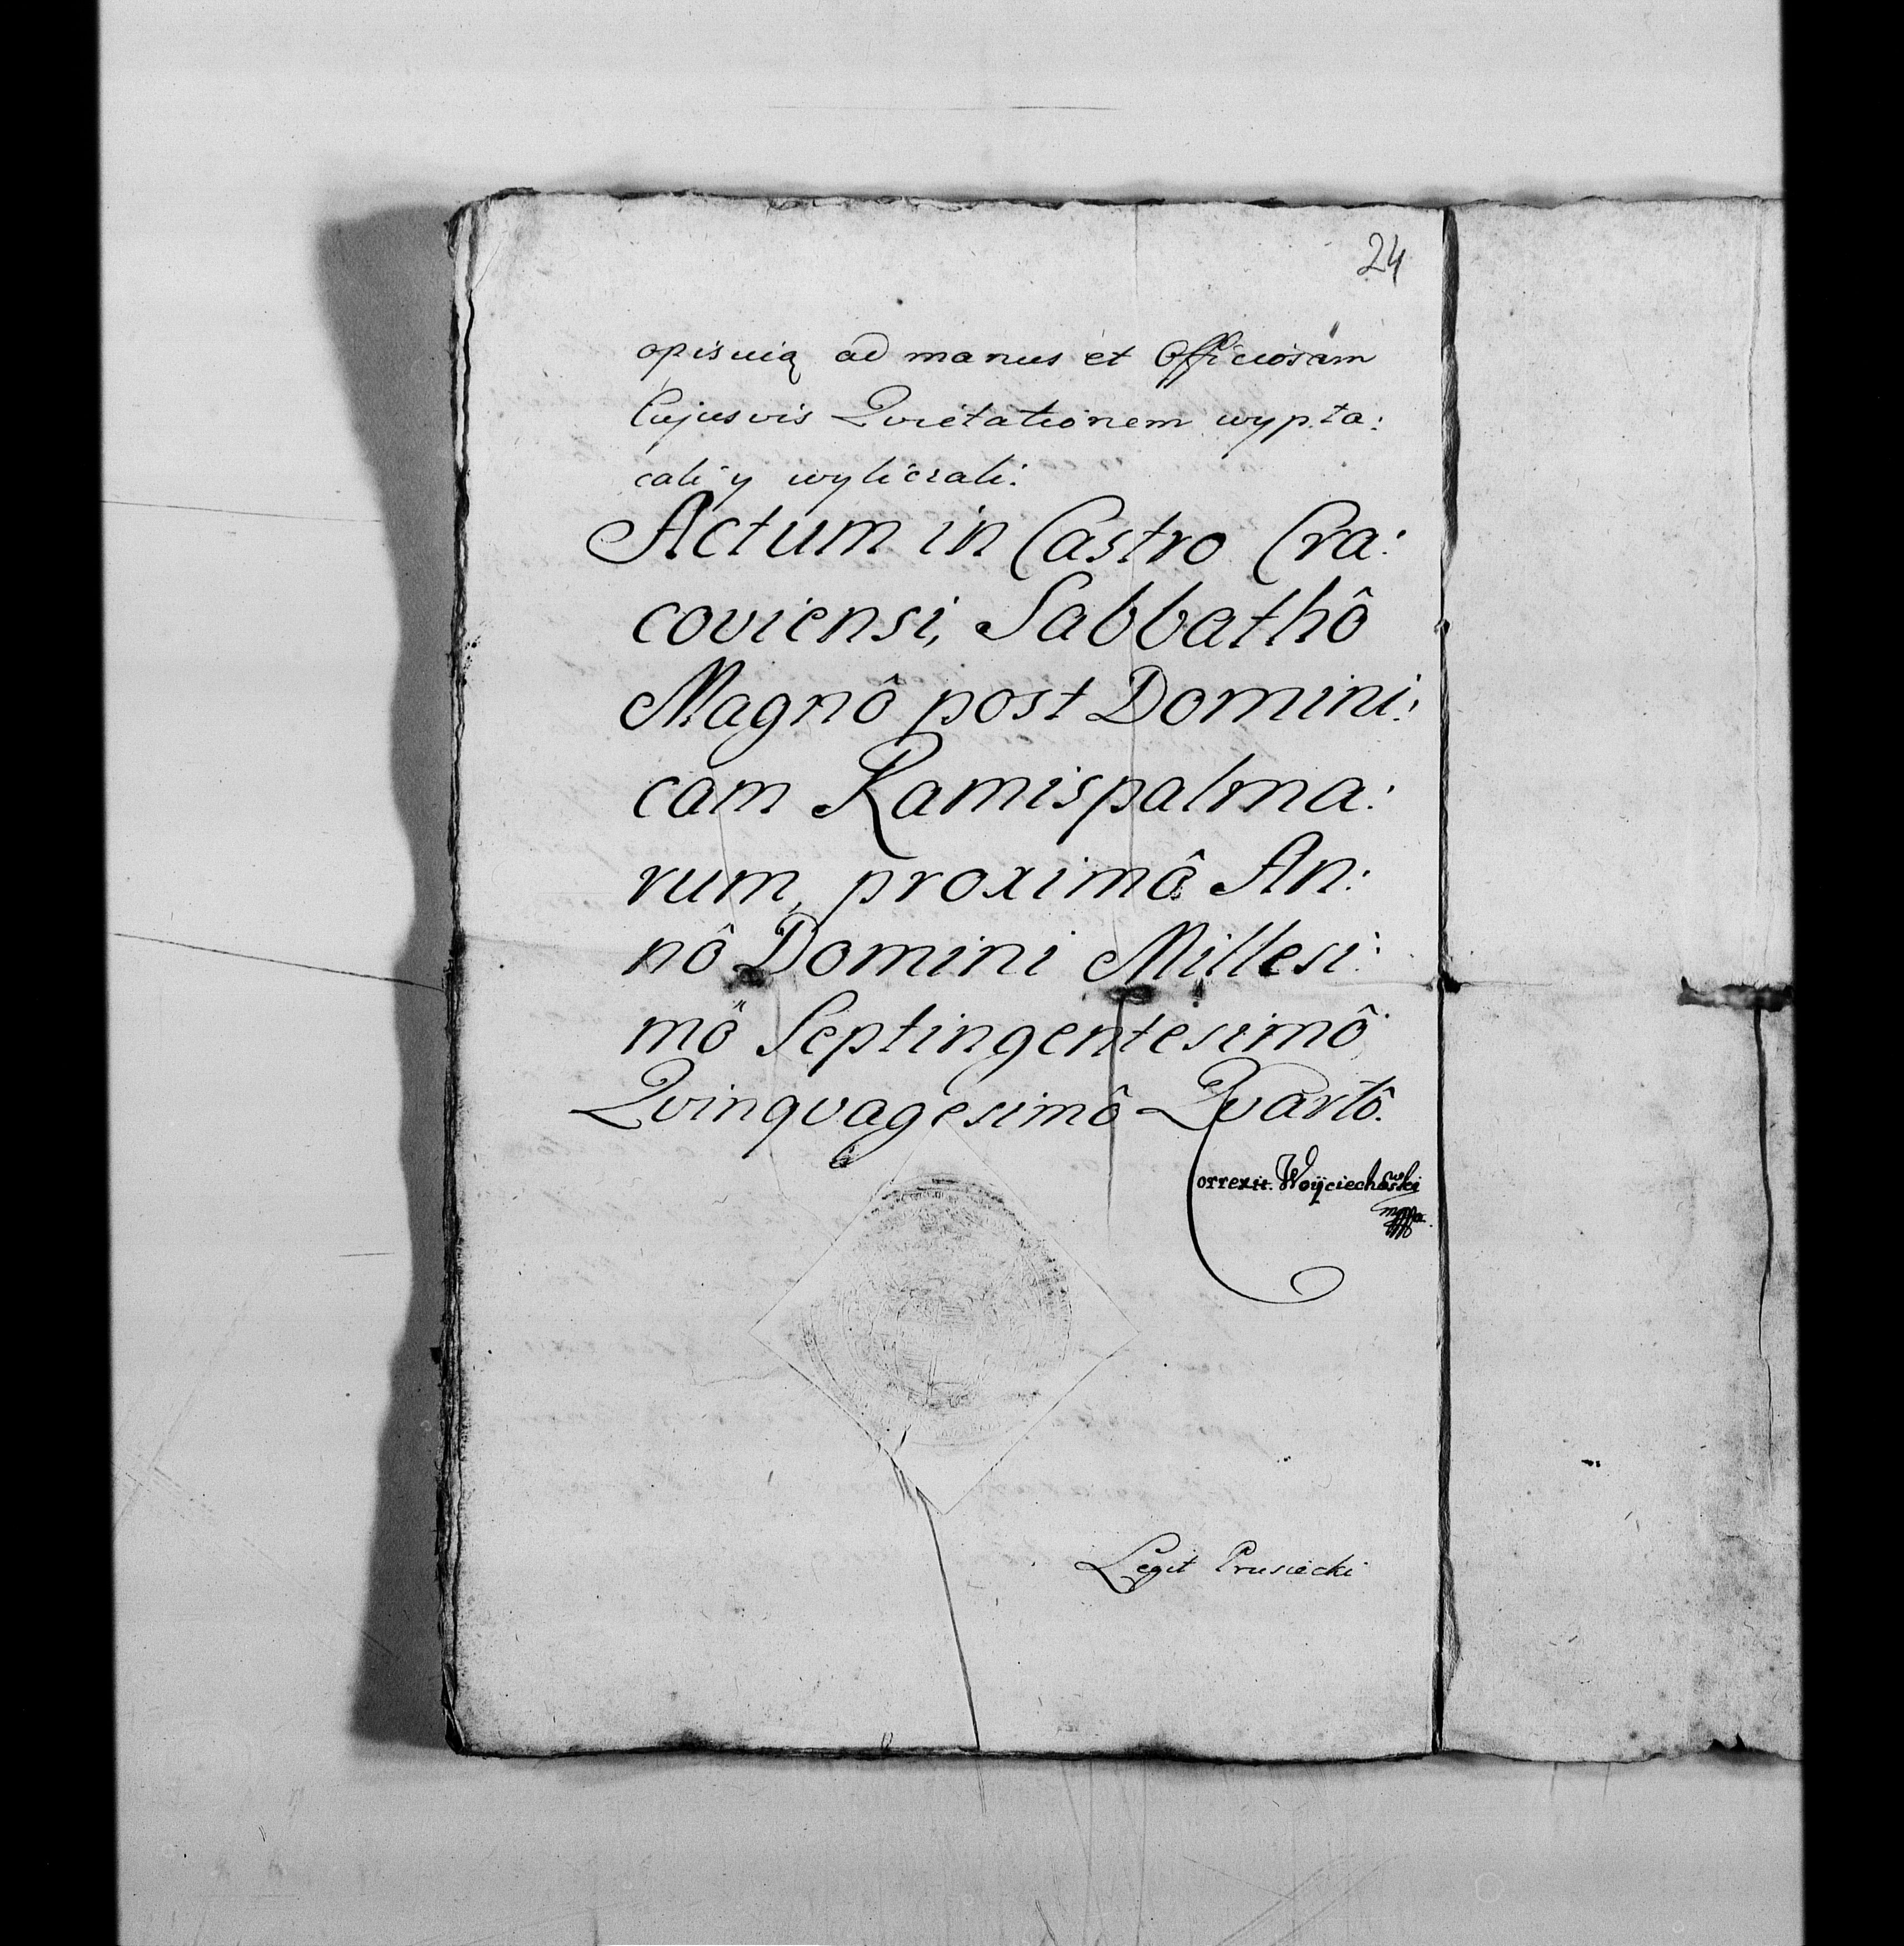 24
opisuią ad manus et Officiosam
Cujusvis Qvietationem wypła:
cali y wyliczali:
Actum in Castro Cra:
coviensi, Sabbathô
Magnô post Domini:
cam Ramispalma:
rum, proximô An:
nô Domini Millesi:
mô Septingentesimô
Qvinqvagesimô Qvartô.
Correxit Woÿciechowski
mppa
Legit Prusiecki